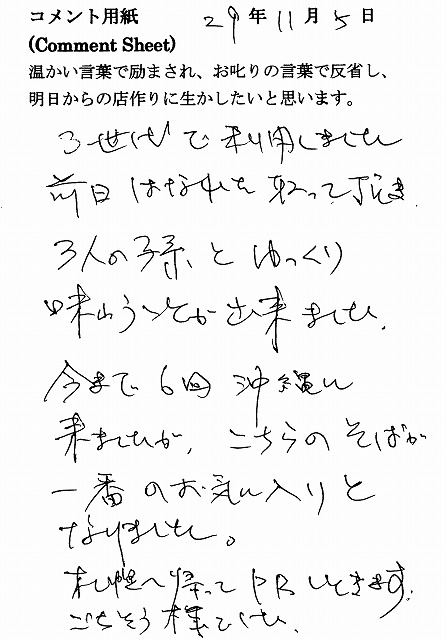 コメント用紙 29年11月5日
(Comment Sheet)
温かい言葉で励まされ、お叱りの言葉で反省し、
明日からの店作りに生かしたいと思います。
3世代で利用しました
前日はなれを取って頂き
3人の子孫とゆっくり
味わうことが出来ました。
今まで6回沖縄に
来ましたが、こちらのそばが
一番のお気に入りと
なりました。
札幌へ帰ってPRしときます。
ごちそう様でした。